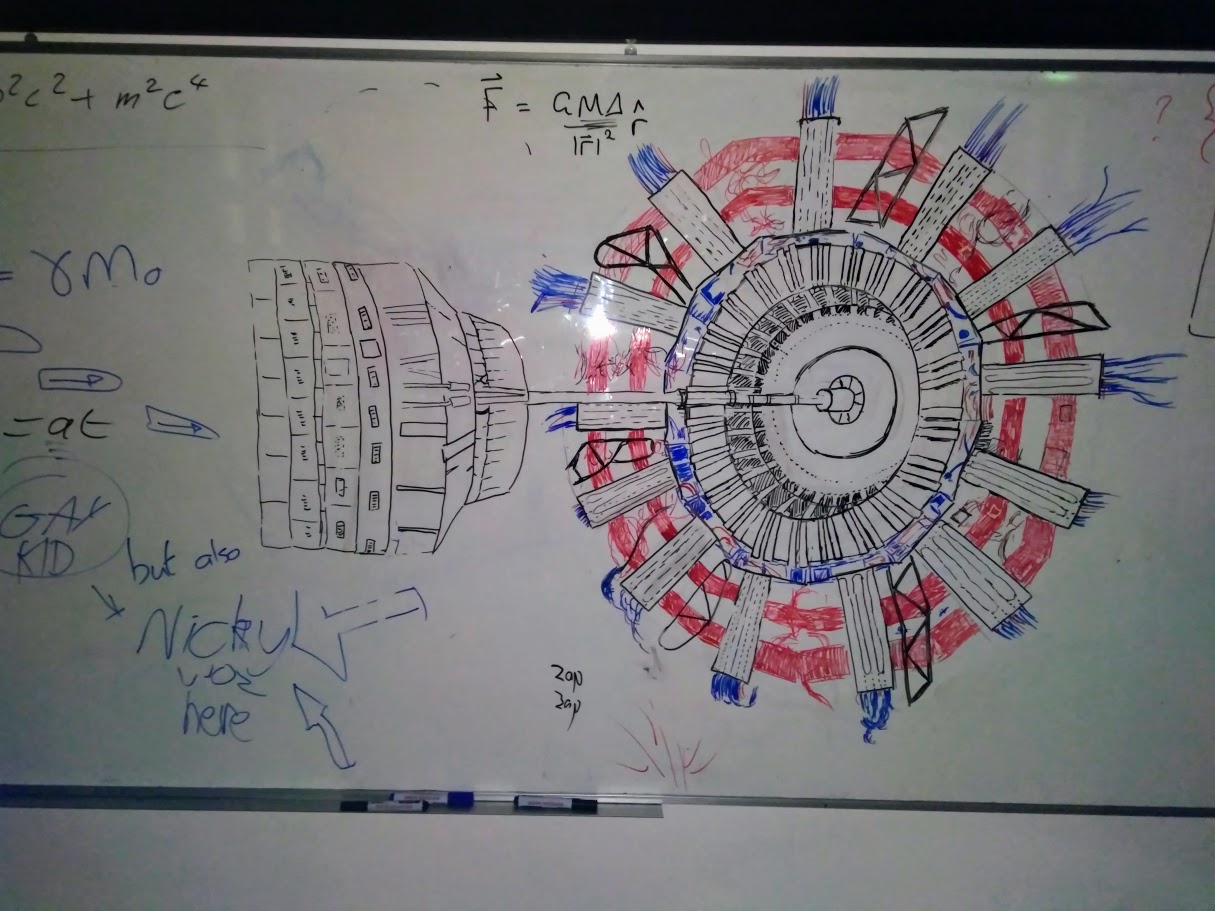 ²c² + m²c⁴
F⃗ = GMΔ r̂
|r⃗|²
?
= γm₀
= at
GAY
KID
but also
Nicky
was
here
zap
zap